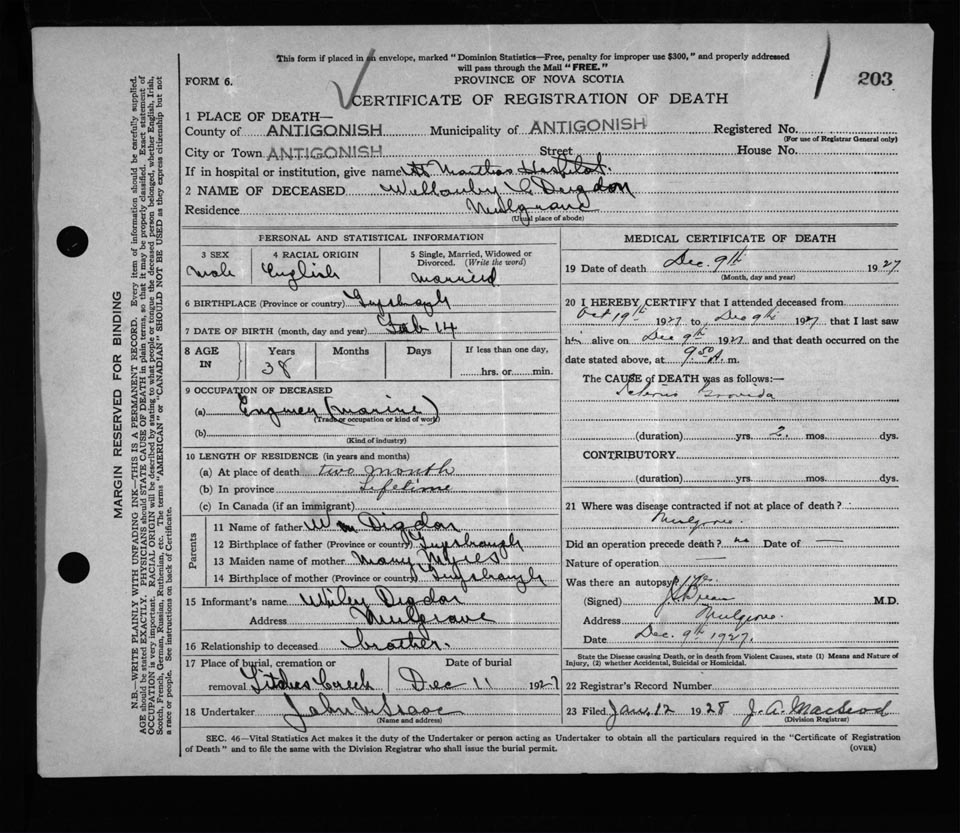 This form if placed in an envelope, marked "Dominion Statistics—Free, penalty for improper use $300," and properly addressed
will pass through the Mail "FREE."
FORM 6.
PROVINCE OF NOVA SCOTIA
203
CERTIFICATE OF REGISTRATION OF DEATH
1 PLACE OF DEATH—
County of ANTIGONISH Municipality of ANTIGONISH Registered No.
(For use of Registrar General only)
City or Town ANTIGONISH Street House No.
If in hospital or institution, give name St Marthas Hospital.
2 NAME OF DECEASED Digdon
Residence Mulgrave
(Usual place of abode)
PERSONAL AND STATISTICAL INFORMATION
3 SEX
male
4 RACIAL ORIGIN
English
5 Single, Married, Widowed or
Divorced. (Write the word)
married
6 BIRTHPLACE (Province or country) Guysborough
7 DATE OF BIRTH (month, day and year) Feb 14
8 AGE
IN
Years Months Days If less than one day,
38
hrs. or min.
9 OCCUPATION OF DECEASED
(a) (marine)
(Trade or occupation or kind of work)
(b)
(Kind of industry)
10 LENGTH OF RESIDENCE (in years and months)
(a) At place of death two month
(b) In province Lifetime
(c) In Canada (if an immigrant)
Parents
11 Name of father Wm Digdon
12 Birthplace of father (Province or country) Guysborough
13 Maiden name of mother Mary Myres
14 Birthplace of mother (Province or country) Guysborough
15 Informant's name Wiley Digdon
Address Mulgrave
16 Relationship to deceased brother.
17 Place of burial, cremation or
removal Pitches Creek
Date of burial
Dec 11 1927
18 Undertaker John
(Name and address)
MEDICAL CERTIFICATE OF DEATH
19 Date of death Dec. 9th 1927
(Month, day and year)
20 I HEREBY CERTIFY that I attended deceased from
Oct 19th 1927 to Dec 9th 1927 that I last saw
him alive on Dec 9th 1927 and that death occurred on the
date stated above, at 9.50 A. m.
The CAUSE of DEATH was as follows:—
Icterus Gravida
(duration) yrs. 2 mos. dys.
CONTRIBUTORY
(duration) yrs. mos. dys.
21 Where was disease contracted if not at place of death?
Mulgrave.
Did an operation precede death? no Date of —
Nature of operation —
Was there an autopsy? No
(Signed) M.D.
Address Mulgrave.
Date Dec. 9th 1927.
State the Disease causing Death, or in death from Violent Causes, state (1) Means and Nature of
Injury, (2) whether Accidental, Suicidal or Homicidal.
22 Registrar's Record Number
23 Filed Jan. 12 1928 J. A. MacLeod
(Division Registrar)
SEC. 46—Vital Statistics Act makes it the duty of the Undertaker or person acting as Undertaker to obtain all the particulars required in the "Certificate of Registration
of Death" and to file the same with the Division Registrar who shall issue the burial permit.
(OVER)
MARGIN RESERVED FOR BINDING
N.B.—WRITE PLAINLY WITH UNFADING INK—THIS IS A PERMANENT RECORD. Every item of information should be carefully supplied.
AGE should be stated EXACTLY. PHYSICIANS should STATE CAUSE OF DEATH in plain terms, so that it may be properly classified. Exact statement of
OCCUPATION is very important. RACIAL ORIGIN will be described by stating to what people or tongue the deceased person belonged, whether English, Irish,
Scotch, French, German, Russian, Ruthenian, etc. The terms "AMERICAN" or "CANADIAN" SHOULD NOT BE USED as they express citizenship but not
a race or people. See instructions on back of Certificate.